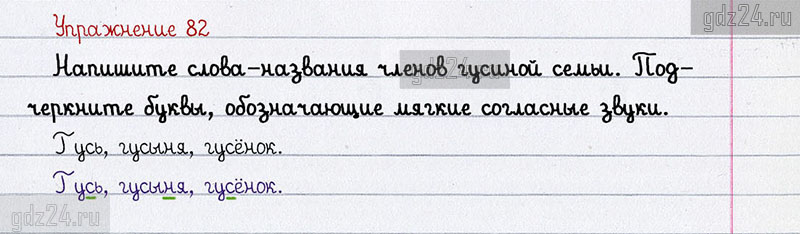 gdz24.ru
Упражнение 82
Напишите слова-названия членов гусиной семьи. Под-
черкните буквы, обозначающие мягкие согласные звуки.
Гусь, гусыня, гусёнок.
Гусь, гусыня, гусёнок.
gdz24.ru